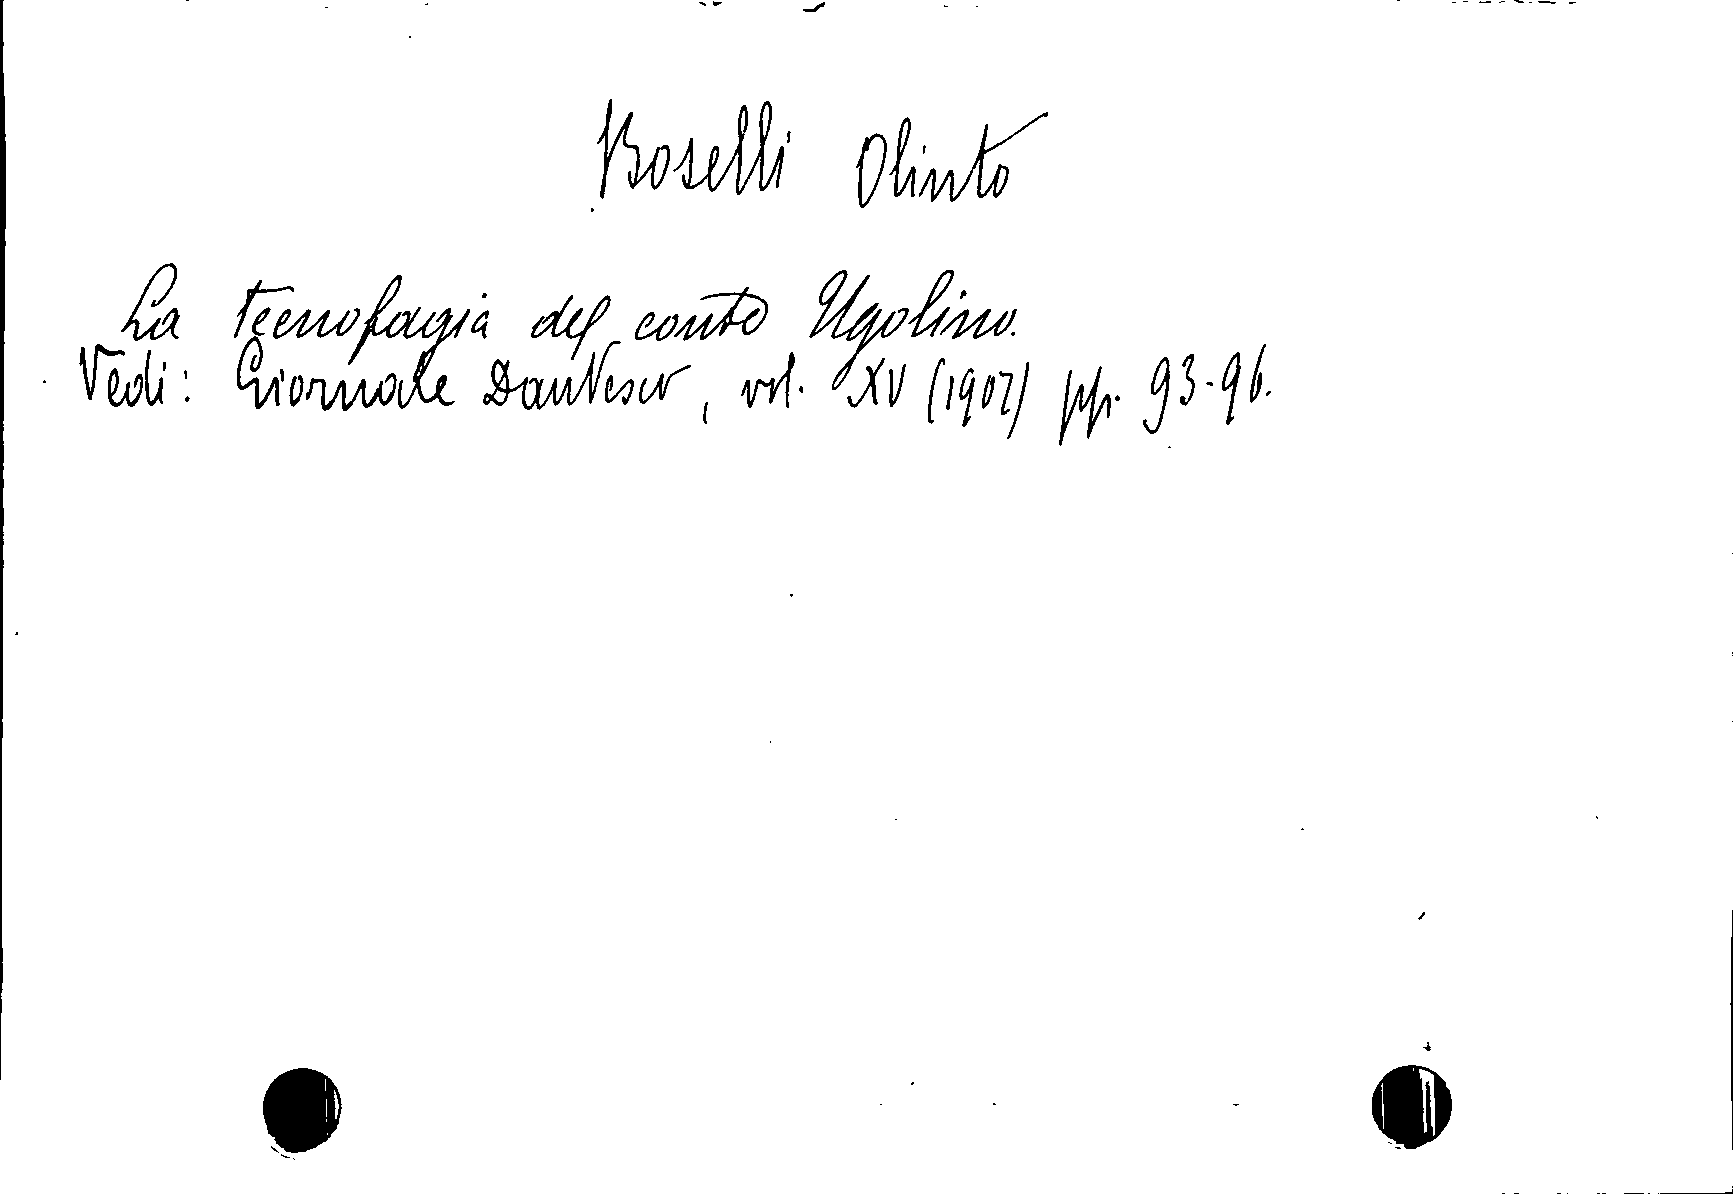 Boselli Olinto
La tecnofagia del conte Ugolino.
Vedi: Giornale Dantesco, vol. XV (1907) pp. 93-96.